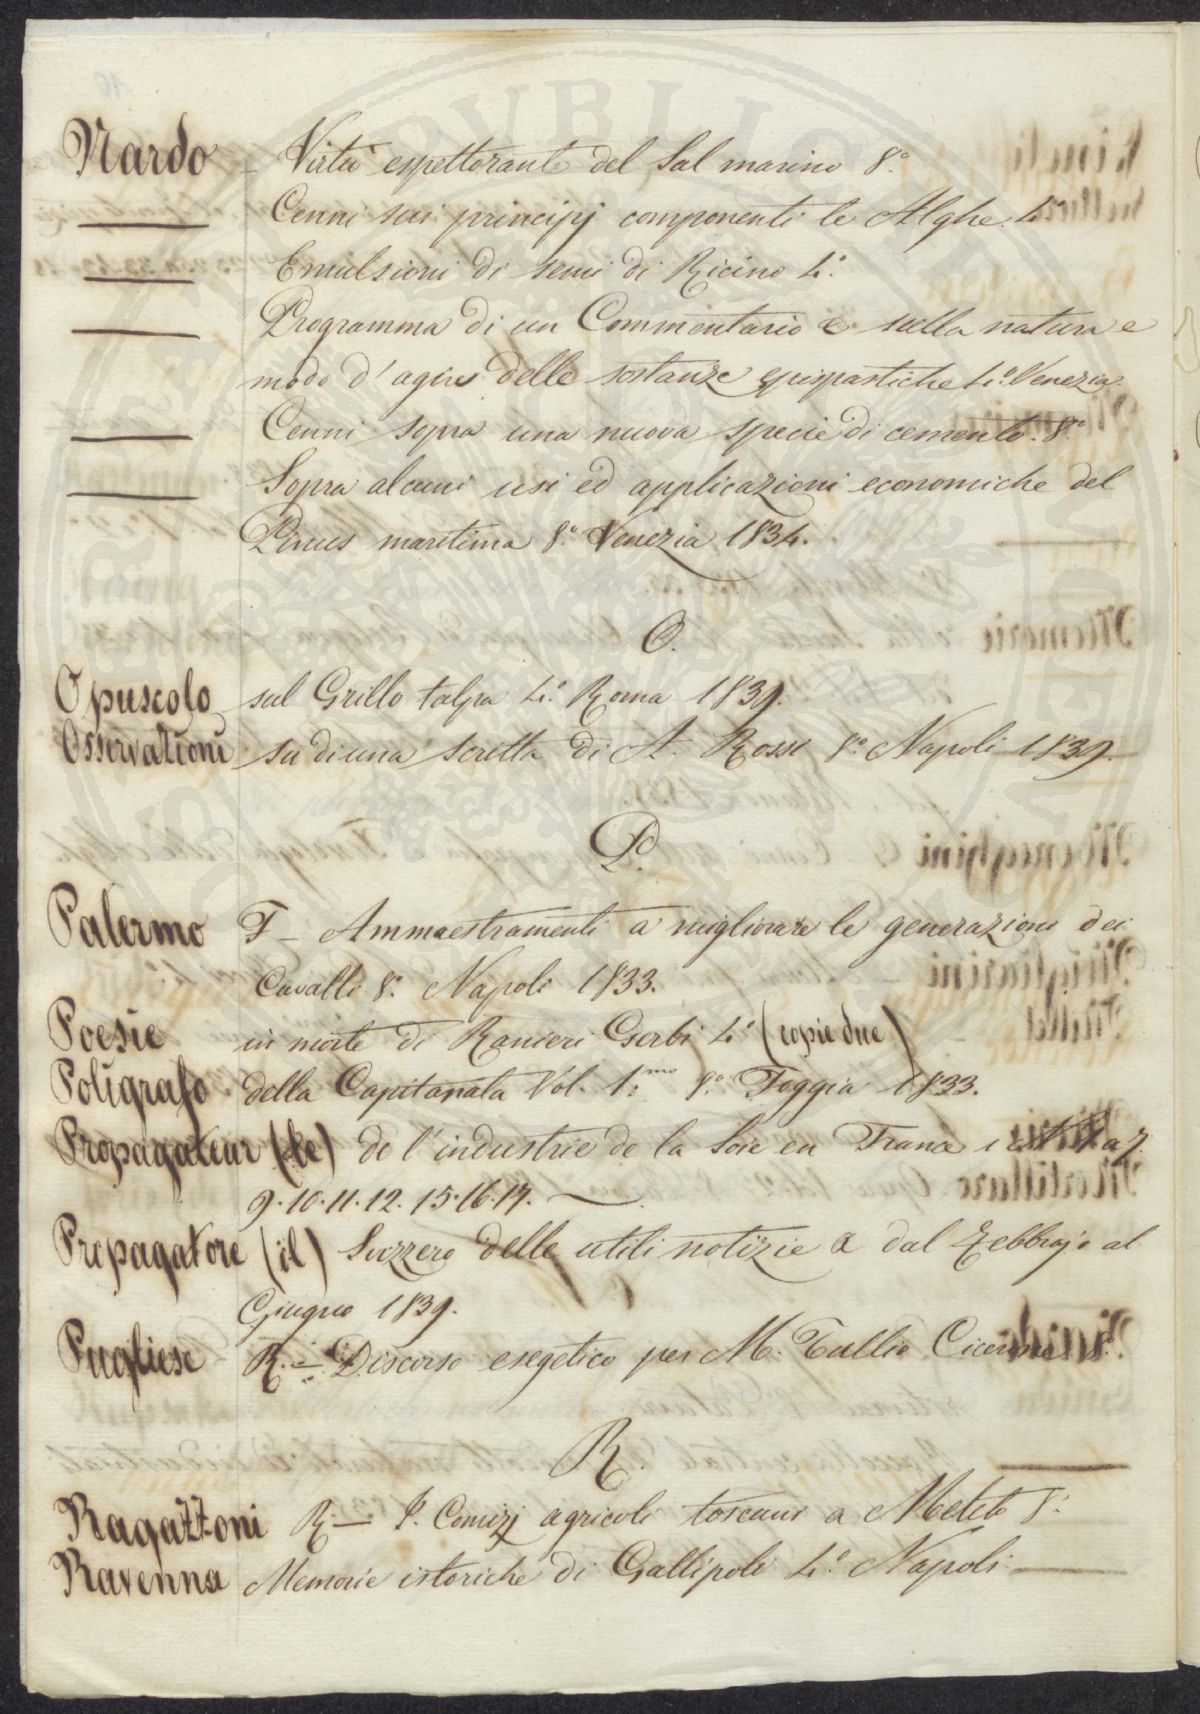 Nardo – Virtù espettorante del Sal marino 8.°
Cenni sui principj componenti le Alghe. 4.°
Emulsioni di semi di Ricino 4.°
Programma di un Commentario sulla natura e
modo d'agire delle sostanze epispastiche 4.° Venezia.
Cenni sopra una nuova specie di cemento. 8.°
Sopra alcuni usi ed applicazioni economiche del
Pinus maritima 8.° Venezia 1834.
O.
Opuscolo sul Grillo talpa 4.° Roma 1839.
Osservazioni su di una scritta di A. Rossi 8.° Napoli 1839.
P.
Palermo F – Ammaestramenti a migliorare le generazioni dei
Cavalli 8.° Napoli 1833.
Poesie in morte di Ranieri Gerbi 4.° (copie due)
Poligrafo della Capitanata Vol. 1.mo 8.° Foggia 1833.
Propagateur (le) de l'industrie de la Soie en France 1 a 7.
9. 10. 11. 12. 15. 16. 17.
Propagatore (il) Svizzero delle utili notizie dal Febbrajo al
Giugno 1839.
Pugliese R. – Discorso esegetico per M. Tullio Cicerone 8.°
R.
Ragazzoni R – I. Comizj agricoli toscani a Meleto 8.°
Ravenna Memorie istoriche di Gallipoli 4.° Napoli